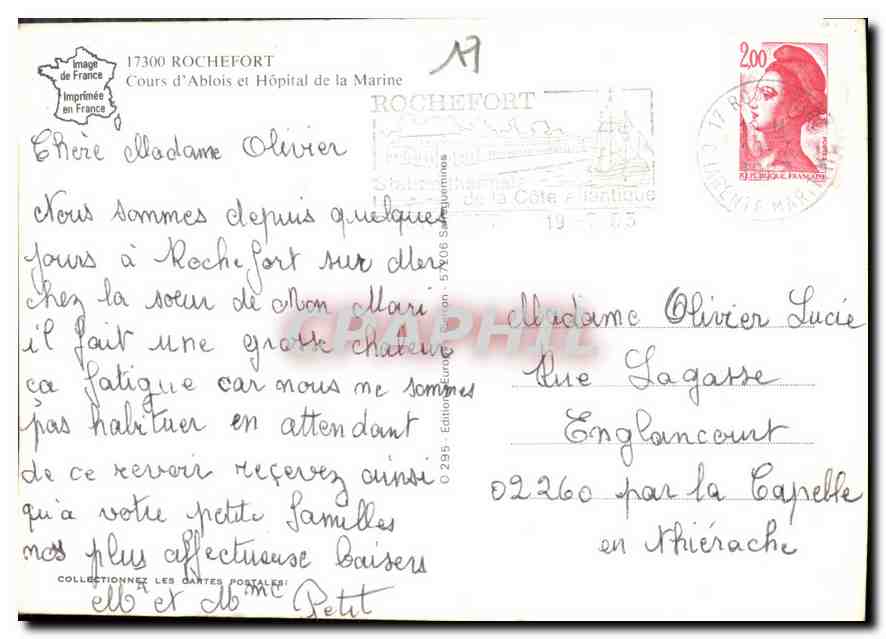 Image
de France
Imprimée
en France
17300 ROCHEFORT
Cours d'Ablois et Hôpital de la Marine
17
ROCHEFORT
Station thermale
de la Côte Atlantique
2,00
REPUBLIQUE FRANÇAISE
Chère Madame Olivier
Nous sommes depuis quelques
jours à Rochefort sur Mer
chez la soeur de Mon Mari
il fait une grosse chaleur
ça fatigue car nous ne sommes
pas habituer en attendant
de ce revoir reçevez ainsi
qu'a votre petite familles
nos plus affectueuse baisers
COLLECTIONNEZ LES CARTES POSTALES
Mr et Mme Petit
Madame Olivier Lucie
Rue Lagasse
Englancourt
02260 par la Capelle
en Thiérache
CPAPHIL